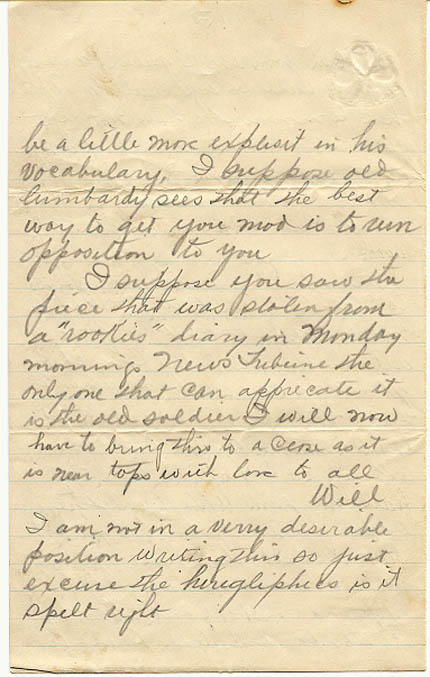 be a little more explisit in his
vocabulary. I suppose old
Lumbardy sees that the best
way to get you mod is to run
opposition to you
I suppose you saw the
piece that was stolen from
a "rookies" diary in Monday
mornings News Tribune the
only one that can apprecate it
is the old soldier I will now
have to bring this to a close as it
is near taps with love to all
Will
I am not in a verry deserable
position writing this so just
excuse the hirogliphics is it
spelt right